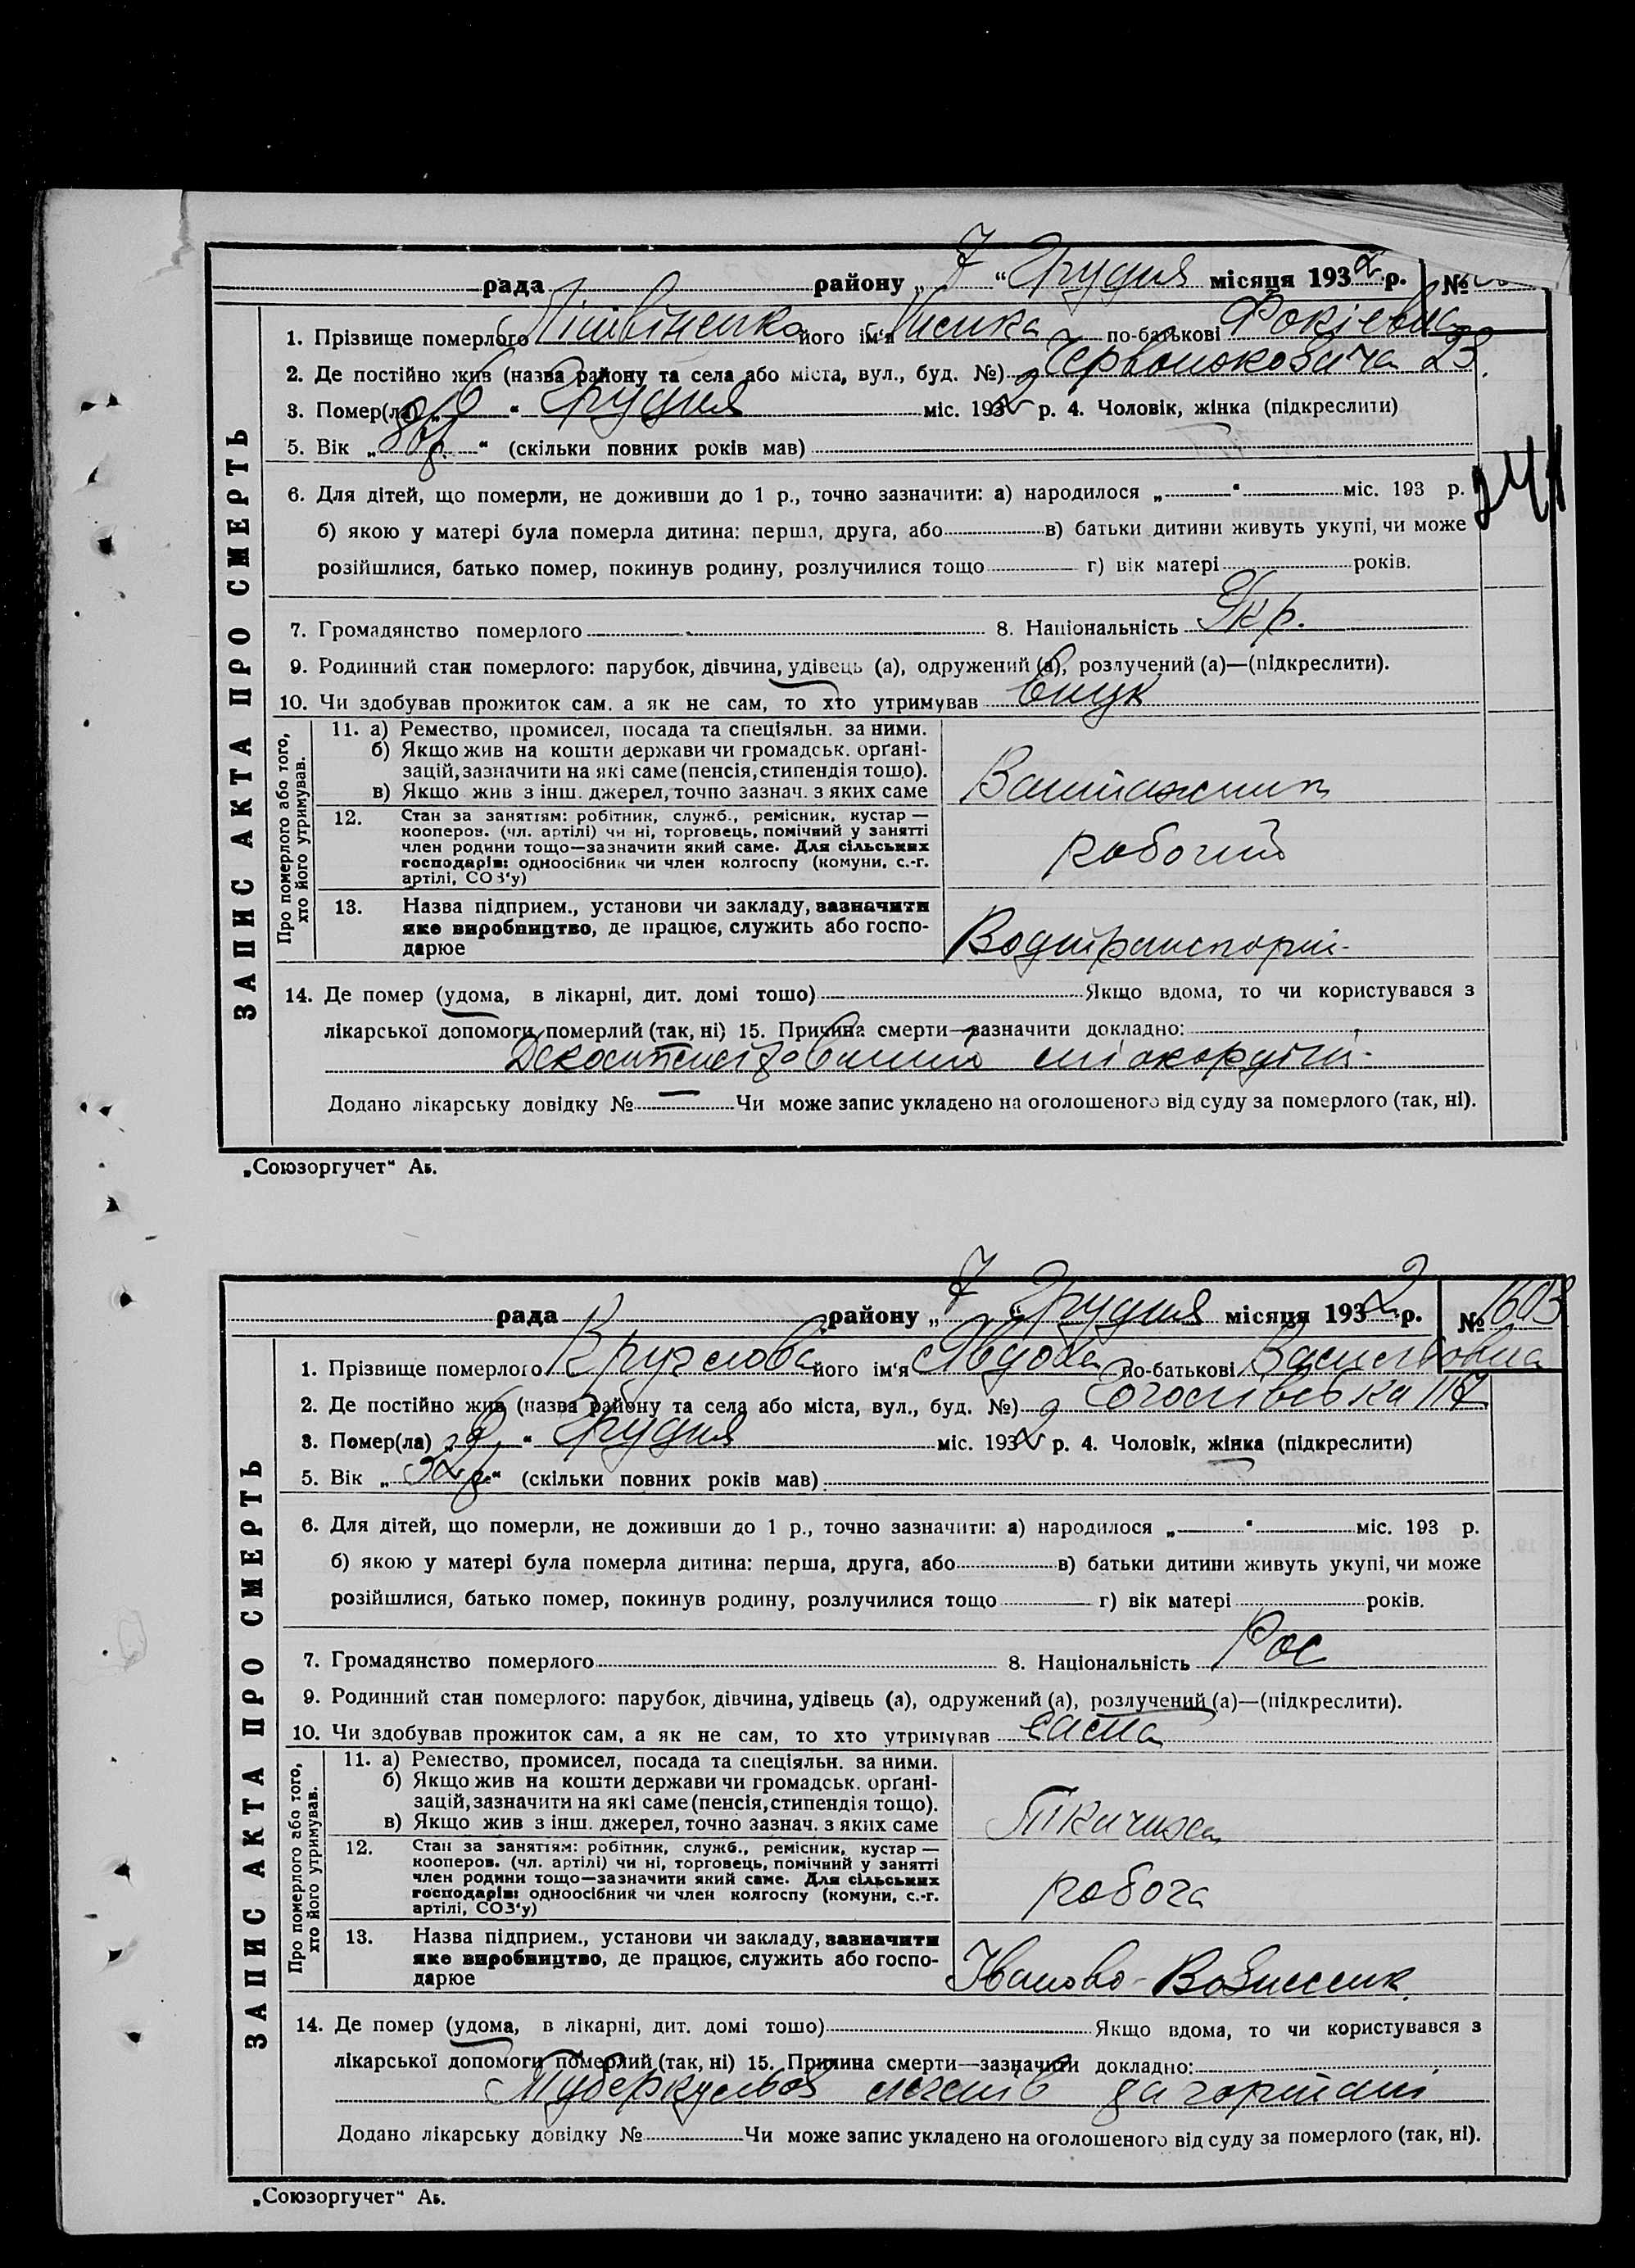 рада району „ 7 “ Грудня місяця 1932 р. №
1. Прізвище померлого Літвіненко його ім'я по-батькові Фокіевна
2. Де постійно жив (назва району та села або міста, вул., буд. №) 23.
3. Помер(ла) „ 6 “ Грудня міс. 1932 р. 4. Чоловік, жінка (підкреслити)
5. Вік „ “ (скільки повних років мав)
6. Для дітей, що померли, не доживши до 1 р., точно зазначити: а) народилося „ “ міс. 193 р.
б) якою у матері була померла дитина: перша, друга, або в) батьки дитини живуть укупі, чи може
розійшлися, батько помер, покинув родину, розлучилися тощо г) вік матері років.
7. Громадянство померлого 8. Національність Укр.
9. Родинний стан померлого: парубок, дівчина, удівець (а), одружений (а), розлучений (а)—(підкреслити).
10. Чи здобував прожиток сам. а як не сам, то хто утримував внук
ЗАПИС АКТА ПРО СМЕРТЬ
Про померлого або того,
хто його утримував.
11. а) Ремество, промисел, посада та спеціяльн. за ними.
б) Якщо жив на кошти держави чи громадськ. орґані-
зацій, зазначити на які саме (пенсія, стипендія тощо).
в) Якщо жив з інш. джерел, точно зазнач. з яких саме
Вантажник
12. Стан за заняттям: робітник, служб., ремісник, кустар —
кооперов. (чл. артілі) чи ні, торговець, помічний у занятті
член родини тощо—зазначити який саме. Для сільських
господарів: одноосібник чи член колгоспу (комуни, с.-г.
артілі, СОЗ'у)
робочий
13. Назва підприєм., установи чи закладу, зазначити
яке виробництво, де працює, служить або госпо-
дарює
Водтранспорт
14. Де помер (удома, в лікарні, дит. домі тощо) Якщо вдома, то чи користувався з
лікарської допомоги померлий (так, ні) 15. Причина смерти—зазначити докладно:
Додано лікарську довідку № — Чи може запис укладено на оголошеного від суду за померлого (так, ні).
„Союзоргучет“ Аь.
рада району „ 7 “ Грудня місяця 1932 р. № 1603
1. Прізвище померлого Круглова його ім'я Явдоха по-батькові Василівна
2. Де постійно жив (назва району та села або міста, вул., буд. №)
3. Помер(ла) „ 6 “ Грудня міс. 1932 р. 4. Чоловік, жінка (підкреслити)
5. Вік „ 32 р. “ (скільки повних років мав)
6. Для дітей, що померли, не доживши до 1 р., точно зазначити: а) народилося „ “ міс. 193 р.
б) якою у матері була померла дитина: перша, друга, або в) батьки дитини живуть укупі, чи може
розійшлися, батько помер, покинув родину, розлучилися тощо г) вік матері років.
7. Громадянство померлого 8. Національність Рос
9. Родинний стан померлого: парубок, дівчина, удівець (а), одружений (а), розлучений (а)—(підкреслити).
10. Чи здобував прожиток сам, а як не сам, то хто утримував сама
ЗАПИС АКТА ПРО СМЕРТЬ
Про померлого або того,
хто його утримував.
11. а) Ремество, промисел, посада та спеціяльн. за ними.
б) Якщо жив на кошти держави чи громадськ. орґані-
зацій, зазначити на які саме (пенсія, стипендія тощо).
в) Якщо жив з інш. джерел, точно зазнач. з яких саме
Ткачиха
12. Стан за заняттям: робітник, служб., ремісник, кустар —
кооперов. (чл. артілі) чи ні, торговець, помічний у занятті
член родини тощо—зазначити який саме. Для сільських
господарів: одноосібник чи член колгоспу (комуни, с.-г.
артілі, СОЗ'у)
робоча
13. Назва підприєм., установи чи закладу, зазначити
яке виробництво, де працює, служить або госпо-
дарює
Іваново-Вознесенк.
14. Де помер (удома, в лікарні, дит. домі тощо) Якщо вдома, то чи користувався з
лікарської допомоги померлий (так, ні) 15. Причина смерти—зазначити докладно:
Туберкульоз легенів да гортані
Додано лікарську довідку № Чи може запис укладено на оголошеного від суду за померлого (так, ні).
„Союзоргучет“ Аь.